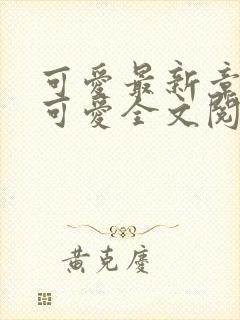 可愛最新章
可愛全文閱
黃克慶